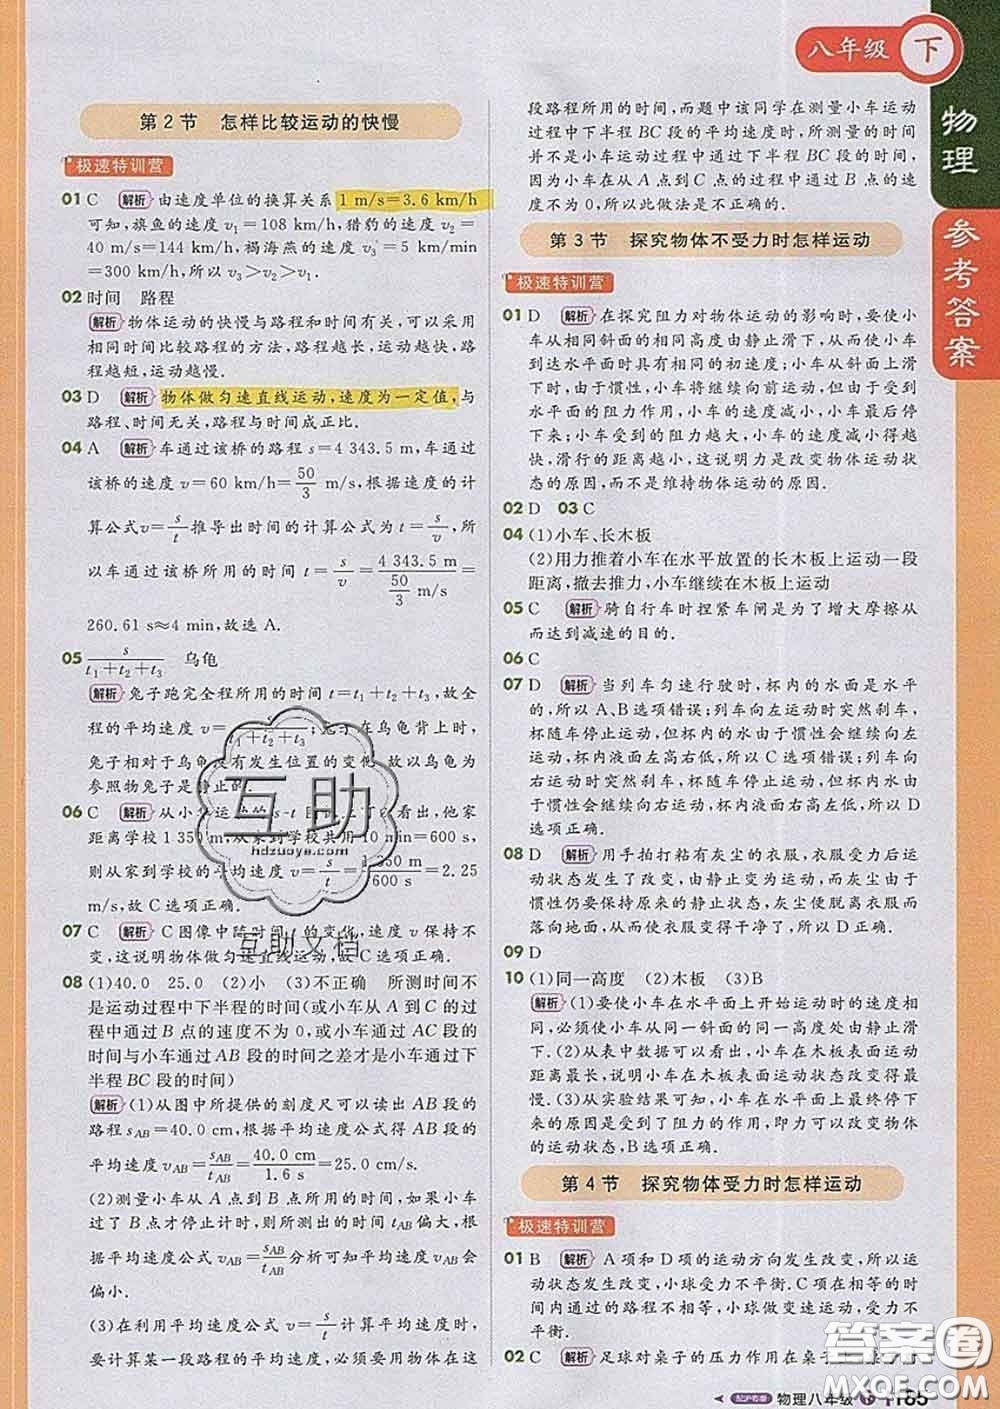 八年级 下
物理
参考答案
第2节 怎样比较运动的快慢
极速特训营
01 C 解析 由速度单位的换算关系 1 m/s=3.6 km/h
可知，旗鱼的速度 v₁=108 km/h，猎豹的速度 v₂=
40 m/s=144 km/h，褐海燕的速度 v₃=5 km/min
=300 km/h，所以 v₃>v₂>v₁.
02 时间 路程
解析 物体运动的快慢与路程和时间有关，可以采用
相同时间比较路程的方法，路程越长，运动越快，路
程越短，运动越慢.
03 D 解析 物体做匀速直线运动，速度为一定值，与
路程、时间无关，路程与时间成正比.
04 A 解析 车通过该桥的路程 s=4 343.5 m，车通过
该桥的速度 v=60 km/h=50/3 m/s，根据速度的计
算公式 v=s/t 推导出时间的计算公式为 t=s/v，所
以车通过该桥所需时间 t=s/v=4 343.5 m/(50/3 m/s)=
260.61 s≈4 min，故选 A.
05 s/(t₁+t₂+t₃) 乌龟
解析 兔子跑完全程所用的时间 t=t₁+t₂+t₃，故全
程的平均速度 v=s/(t₁+t₂+t₃)；兔子在乌龟背上时，
兔子相对于乌龟没有发生位置的变化，故以乌龟为
参照物兔子是静止的.
06 C 解析 从小华运动的 s-t 图像可以看出，他家
距离学校 1 350 m，从家到学校共用 10 min=600 s，
则从家到学校的平均速度 v=s/t=1 350 m/600 s=2.25
m/s，故 C 选项正确.
07 C 解析 C 图像中随时间 t 的变化，速度 v 保持不
变，说明物体做匀速直线运动，故 C 选项正确.
08 (1)40.0 25.0 (2)小 (3)不正确 所测时间不
是运动过程中下半程的时间(或小车从 A 到 C 的过
程中通过 B 点的速度不为 0，或小车通过 AC 段的
时间与小车通过 AB 段的时间之差才是小车通过下
半程 BC 段的时间)
解析 (1)从图中所提供的刻度尺可以读出 AB 段的
路程 s_AB=40.0 cm，根据平均速度公式得 AB 段的
平均速度 v_AB=s_AB/t_AB=40.0 cm/1.6 s=25.0 cm/s.
(2)测量小车从 A 点到 B 点的时间时，如果小车
过了 B 点才停止计时，则所测出的时间 t_AB 偏大，根
据平均速度公式 v_AB=s_AB/t_AB 分析可知平均速度 v_AB 会
偏小.
(3)在利用平均速度公式 v=s/t 计算平均速度时，
要计算某一段路程的平均速度，必须要用物体在这
段路程所用的时间，而题中该同学在测量小车运动
过程中下半程 BC 段的平均速度时，所测量的时间
并不是小车运动过程中下半程 BC 段所用的时间，
因为小车在从 A 点到 C 点的过程中经过 B 点的速
度不为 0，所以此做法是不正确的.
第3节 探究物体不受力时怎样运动
极速特训营
01 D 解析 在探究阻力对物体运动的影响时，要使小
车从相同斜面的相同高度由静止滑下，从而使小车
到达水平面时具有相同的初速度；小车到达水平面
时，由于惯性，小车将继续向前运动，但是，由于受到
水平面的阻力作用，小车的速度减小，小车最后停
下来；小车受到的阻力越大，小车的速度减小得越
快，滑行的距离越小，这说明力是改变物体运动状
态的原因，而不是维持物体运动的原因.
02 D 03 C
04 (1)小车、长木板
(2)用力推着小车在水平放置的长木板上运动一段
距离，撤去推力，小车继续在木板上运动
05 C 解析 骑自行车时捏紧车闸是为了增大摩擦从
而达到减速的目的.
06 C
07 D 解析 当列车匀速行驶时，杯内的水面是水平
的，所以 A、B 选项错误；列车向左运动时突然刹车，
杯随车停止运动，但杯内水由于惯性会继续向左运
动，杯内液面左高右低，所以 C 选项错误；列车向
右运动时突然刹车，杯随车停止运动，但杯内水由于
惯性会继续向右运动，杯内液面右高左低，所以 D
选项正确.
08 D 解析 用手拍打粘有灰尘的衣服，衣服受力后运
动状态发生了改变，由静止变为运动，而灰尘由于
惯性仍要保持原来的静止状态，灰尘便脱离衣服而
落向地面，从而使衣服变得干净，故 D 选项正确.
09 D
10 (1)同一高度 (2)木板 (3)B
解析 (1)要使小车在水平面上开始运动时的速度相
同，必须使小车从同一斜面的同一高度处由静止滑
下.(2)从表中数据可以看出，小车在木板表面运动
距离最短，所以小车在木板表面运动状态改变得最
快.(3)从实验结果可以看到，小车在水平面上最终停
下来的原因是受到了阻力的作用，即力可以改变物
体的运动状态，B 选项正确.
第4节 探究物体受力时怎样运动
极速特训营
01 B 解析 A 项和 D 项的运动方向发生改变，所以运
动状态发生改变，小球受力不平衡.C 项在相等的时
间内通过的路程不相等，小球做变速运动，受力不
平衡.
02 C 解析 足球对桌子的压力作用在桌子上
物理八年级 下 185
互助
hdzuoye.com
互助文档
答案圈
MXQE.COM